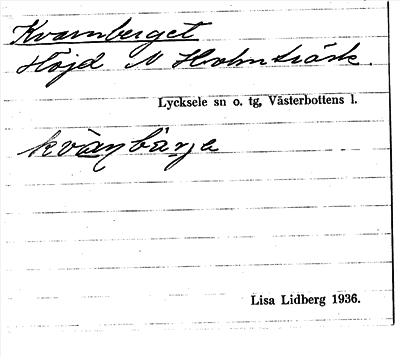 Kvarnberget
Höjd N Holmträsk.
Lycksele sn o. tg, Västerbottens l.
kvàṇbärje
Lisa Lidberg 1936.